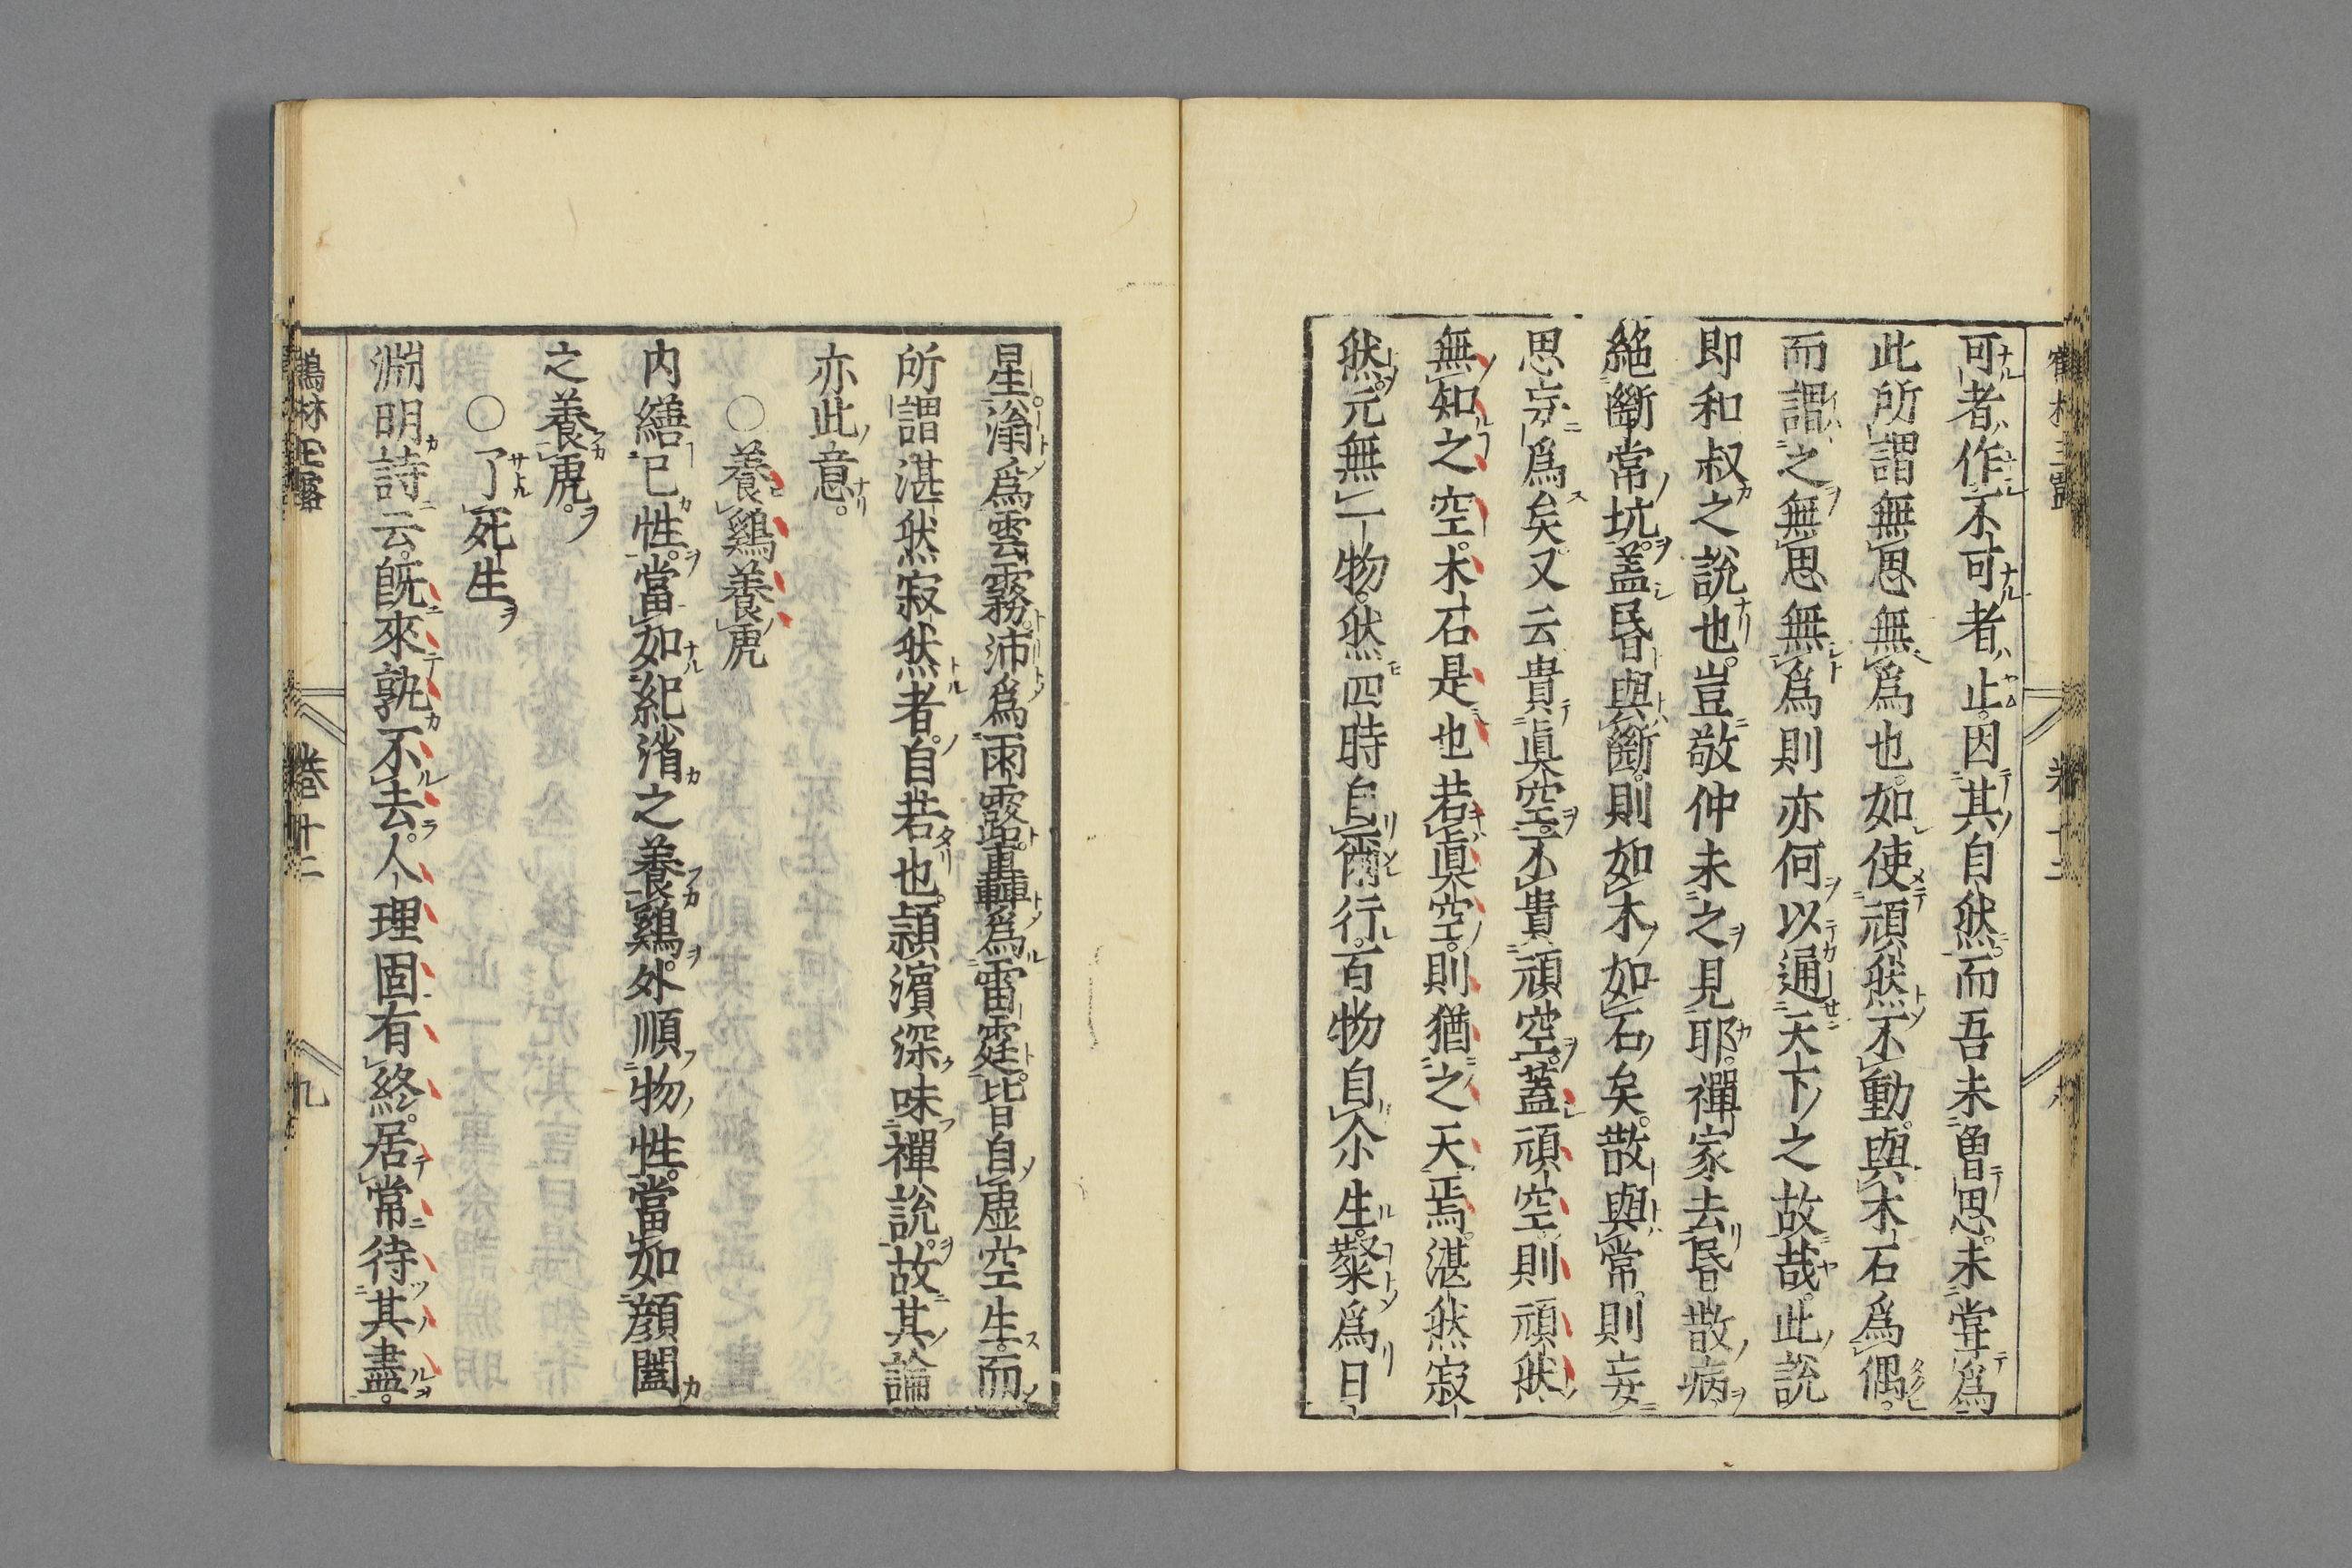 可者作不可者止因其自然而吾未曽思未甞爲
此所謂無思無爲也如使頑然不動與木石爲偶
而謂之無思無爲則亦何以通天下之故哉此說
即和叔之說也豈敬仲未之見耶禪家去昏散病
絕斷常坑蓋昏與斷則如木如石矣散與常則妄
思妄爲矣又云貴眞空不貴頑空蓋頑空則頑然
無知之空木石是也若眞空則猶之天焉湛然寂
然元無一物然四時自爾行百物自尒生粲爲日
星滃爲雲霧沛爲雨露轟爲雷霆皆自虛空生而
所謂湛然寂然者自若也頴濱深味禪說故其論
亦此意
○養鷄養虎
内繕已性當如紀渻之養鷄外順物性當如顏闔
之養虎
○了死生
淵明詩云旣來孰不去人理固有終居常待其盡
鶴林玉露 卷十二 九